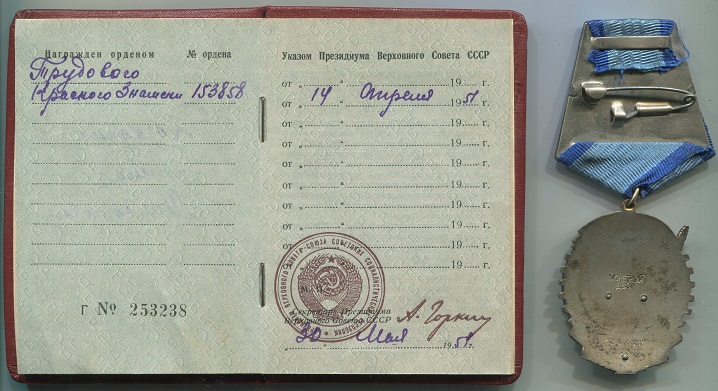 Награжден орденом № ордена
Трудового
Красного Знамени 153858
Г № 253238
Указом Президиума Верховного Совета СССР
от „ “ 19 г.
от „ 14 “ Апреля 1951 г.
от „ “ 19 г.
от „ “ 19 г.
от „ “ 19 г.
от „ “ 19 г.
от „ “ 19 г.
от „ “ 19 г.
от „ “ 19 г.
М. П.
Секретарь Президиума
Верховного Совета СССР А. Горкин
„ 30 “ Мая 1951 г.
МОНЕТНЫЙ
ДВОР